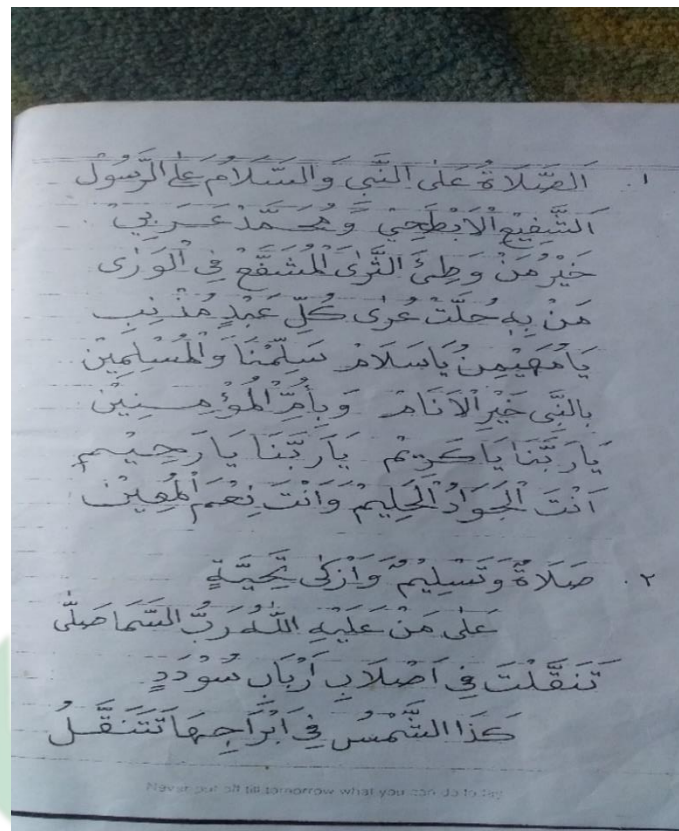 ١. اَلصَّلَاةُ عَلَى النَّبِيِّ وَالسَّلَامُ عَلَى الرَّسُوْلِ
اَلشَّفِيْعِ الْاَبْطَحِيْ وَمُحَمَّدْ عَرَبِيْ
خَيْرُ مَنْ وَطِئَ الثَّرٰى الْمُشَفَّعْ فِي الْوَرٰى
مَنْ بِهِ حُلَّتْ عُرٰى كُلِّ عَبْدٍ مُذْنِبِ
يَامُهَيْمِنُ يَاسَلَامْ سَلِّمْنَا وَالْمُسْلِمِيْنْ
بِالنَّبِى خَيْرِ الْاَنَامْ وَبِأُمِّ الْمُؤْمِنِيْنْ
يَارَبَّنَا يَاكَرِيْم يَارَبَّنَا يَارَحِيْم
اَنْتَ الْجَوَادُ الْحَلِيْمْ وَاَنْتَ نِعْمَ الْمُعِيْنْ
٢. صَلَاةٌ وَتَسْلِيْمٌ وَاَزْكٰى تَحِيَّةٍ
عَلٰى مَنْ عَلَيْهِ اللّٰهُ رَبُّ السَّمَا صَلّٰى
تَنَقَّلْتَ فِي اَصْلَابِ اَرْبَابِ سُوْدَدٍ
كَذَا الشَّمْسُ فِي اَبْرَاجِهَا تَتَنَقَّلُ
Never put off till tomorrow what you can do to day